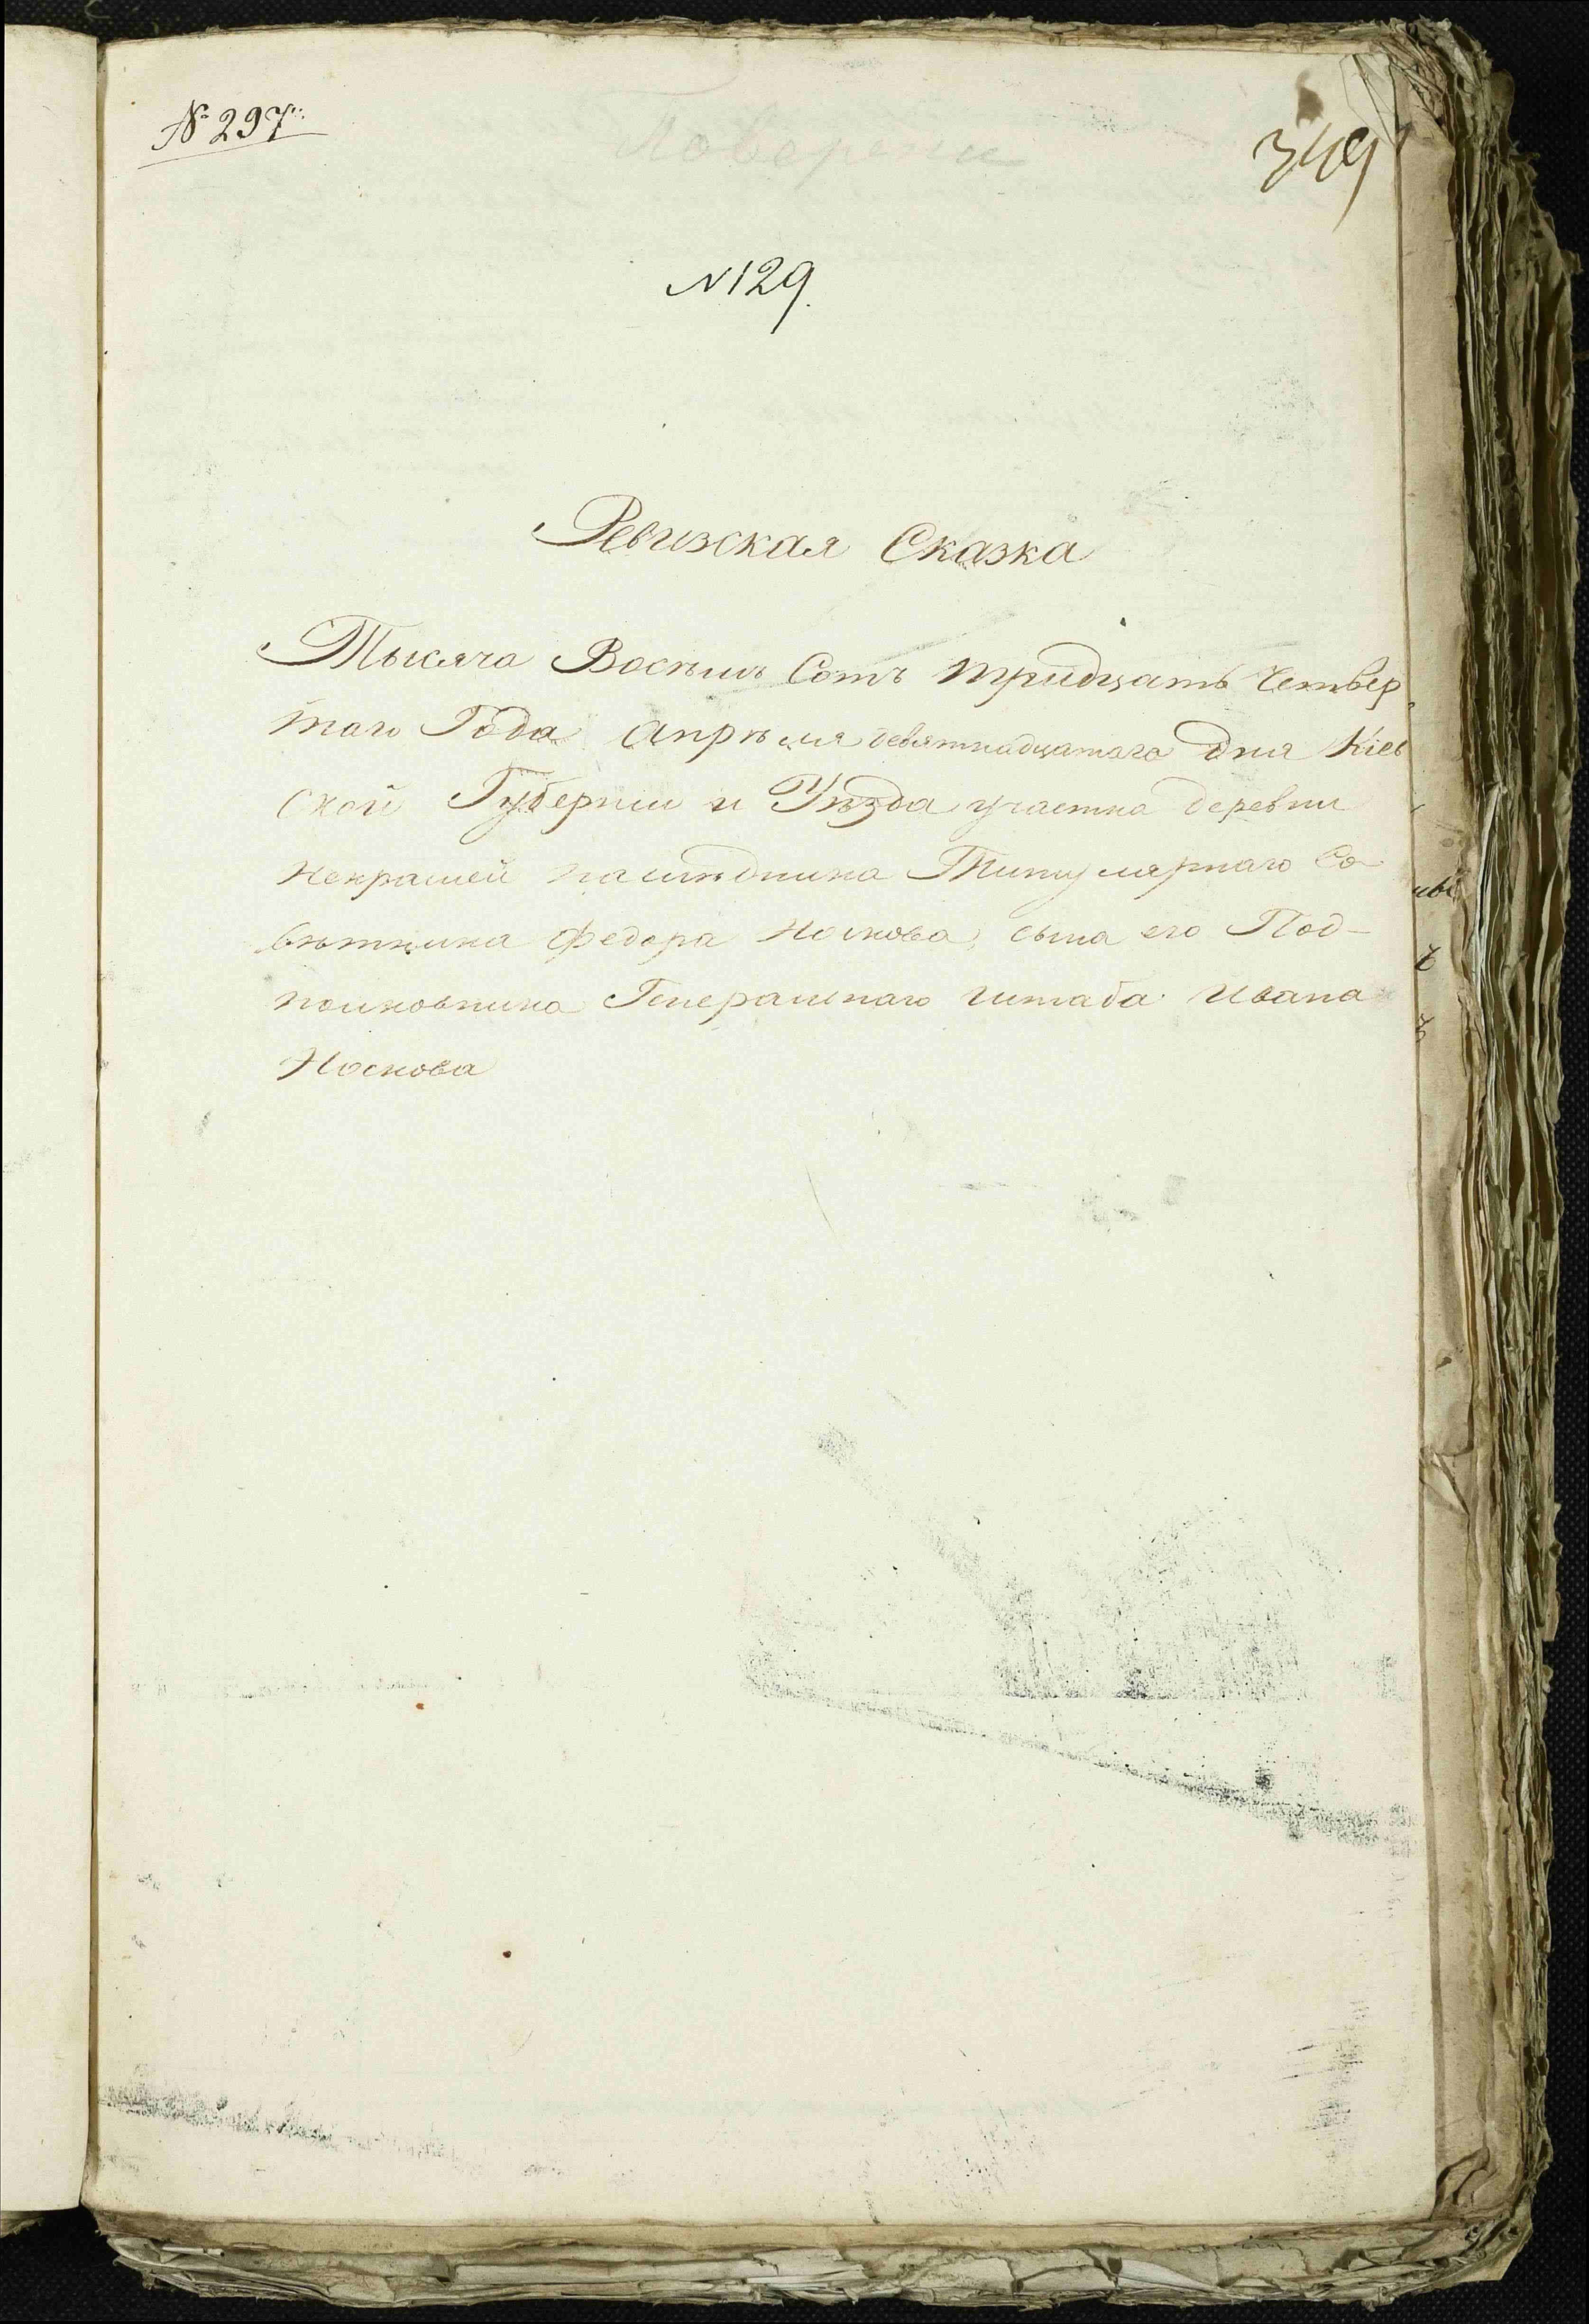 № 297
Поверены
349
№ 129.
Ревизская Сказка
Тысяча Восѣмь Сотъ тридцать Четвер
таго Года Апрѣля девятнадцатаго дня Кіев
ской Губерніи и Уѣзда участка деревни
Некрашей наслѣдника Титулярнаго Со-
вѣтника Федора Носкова, сына его Под-
полковника Генеральнаго штаба Ивана
Носкова